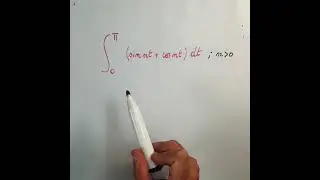 ∫₀^π (sin nt + cos nt) dt ; n>0